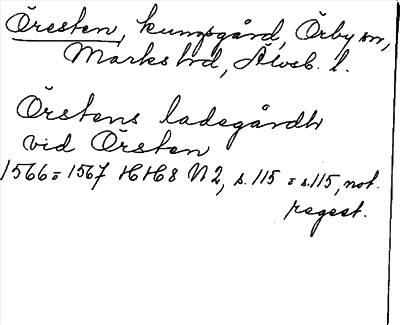 Öresten, kungsgård, Örby sn,
Marks hd, Älvsb. l.
Örstens ladegårdh
vid Örsten
1566 = 1567 HH 8 N 2, s. 115 = s. 115, not.
regest.